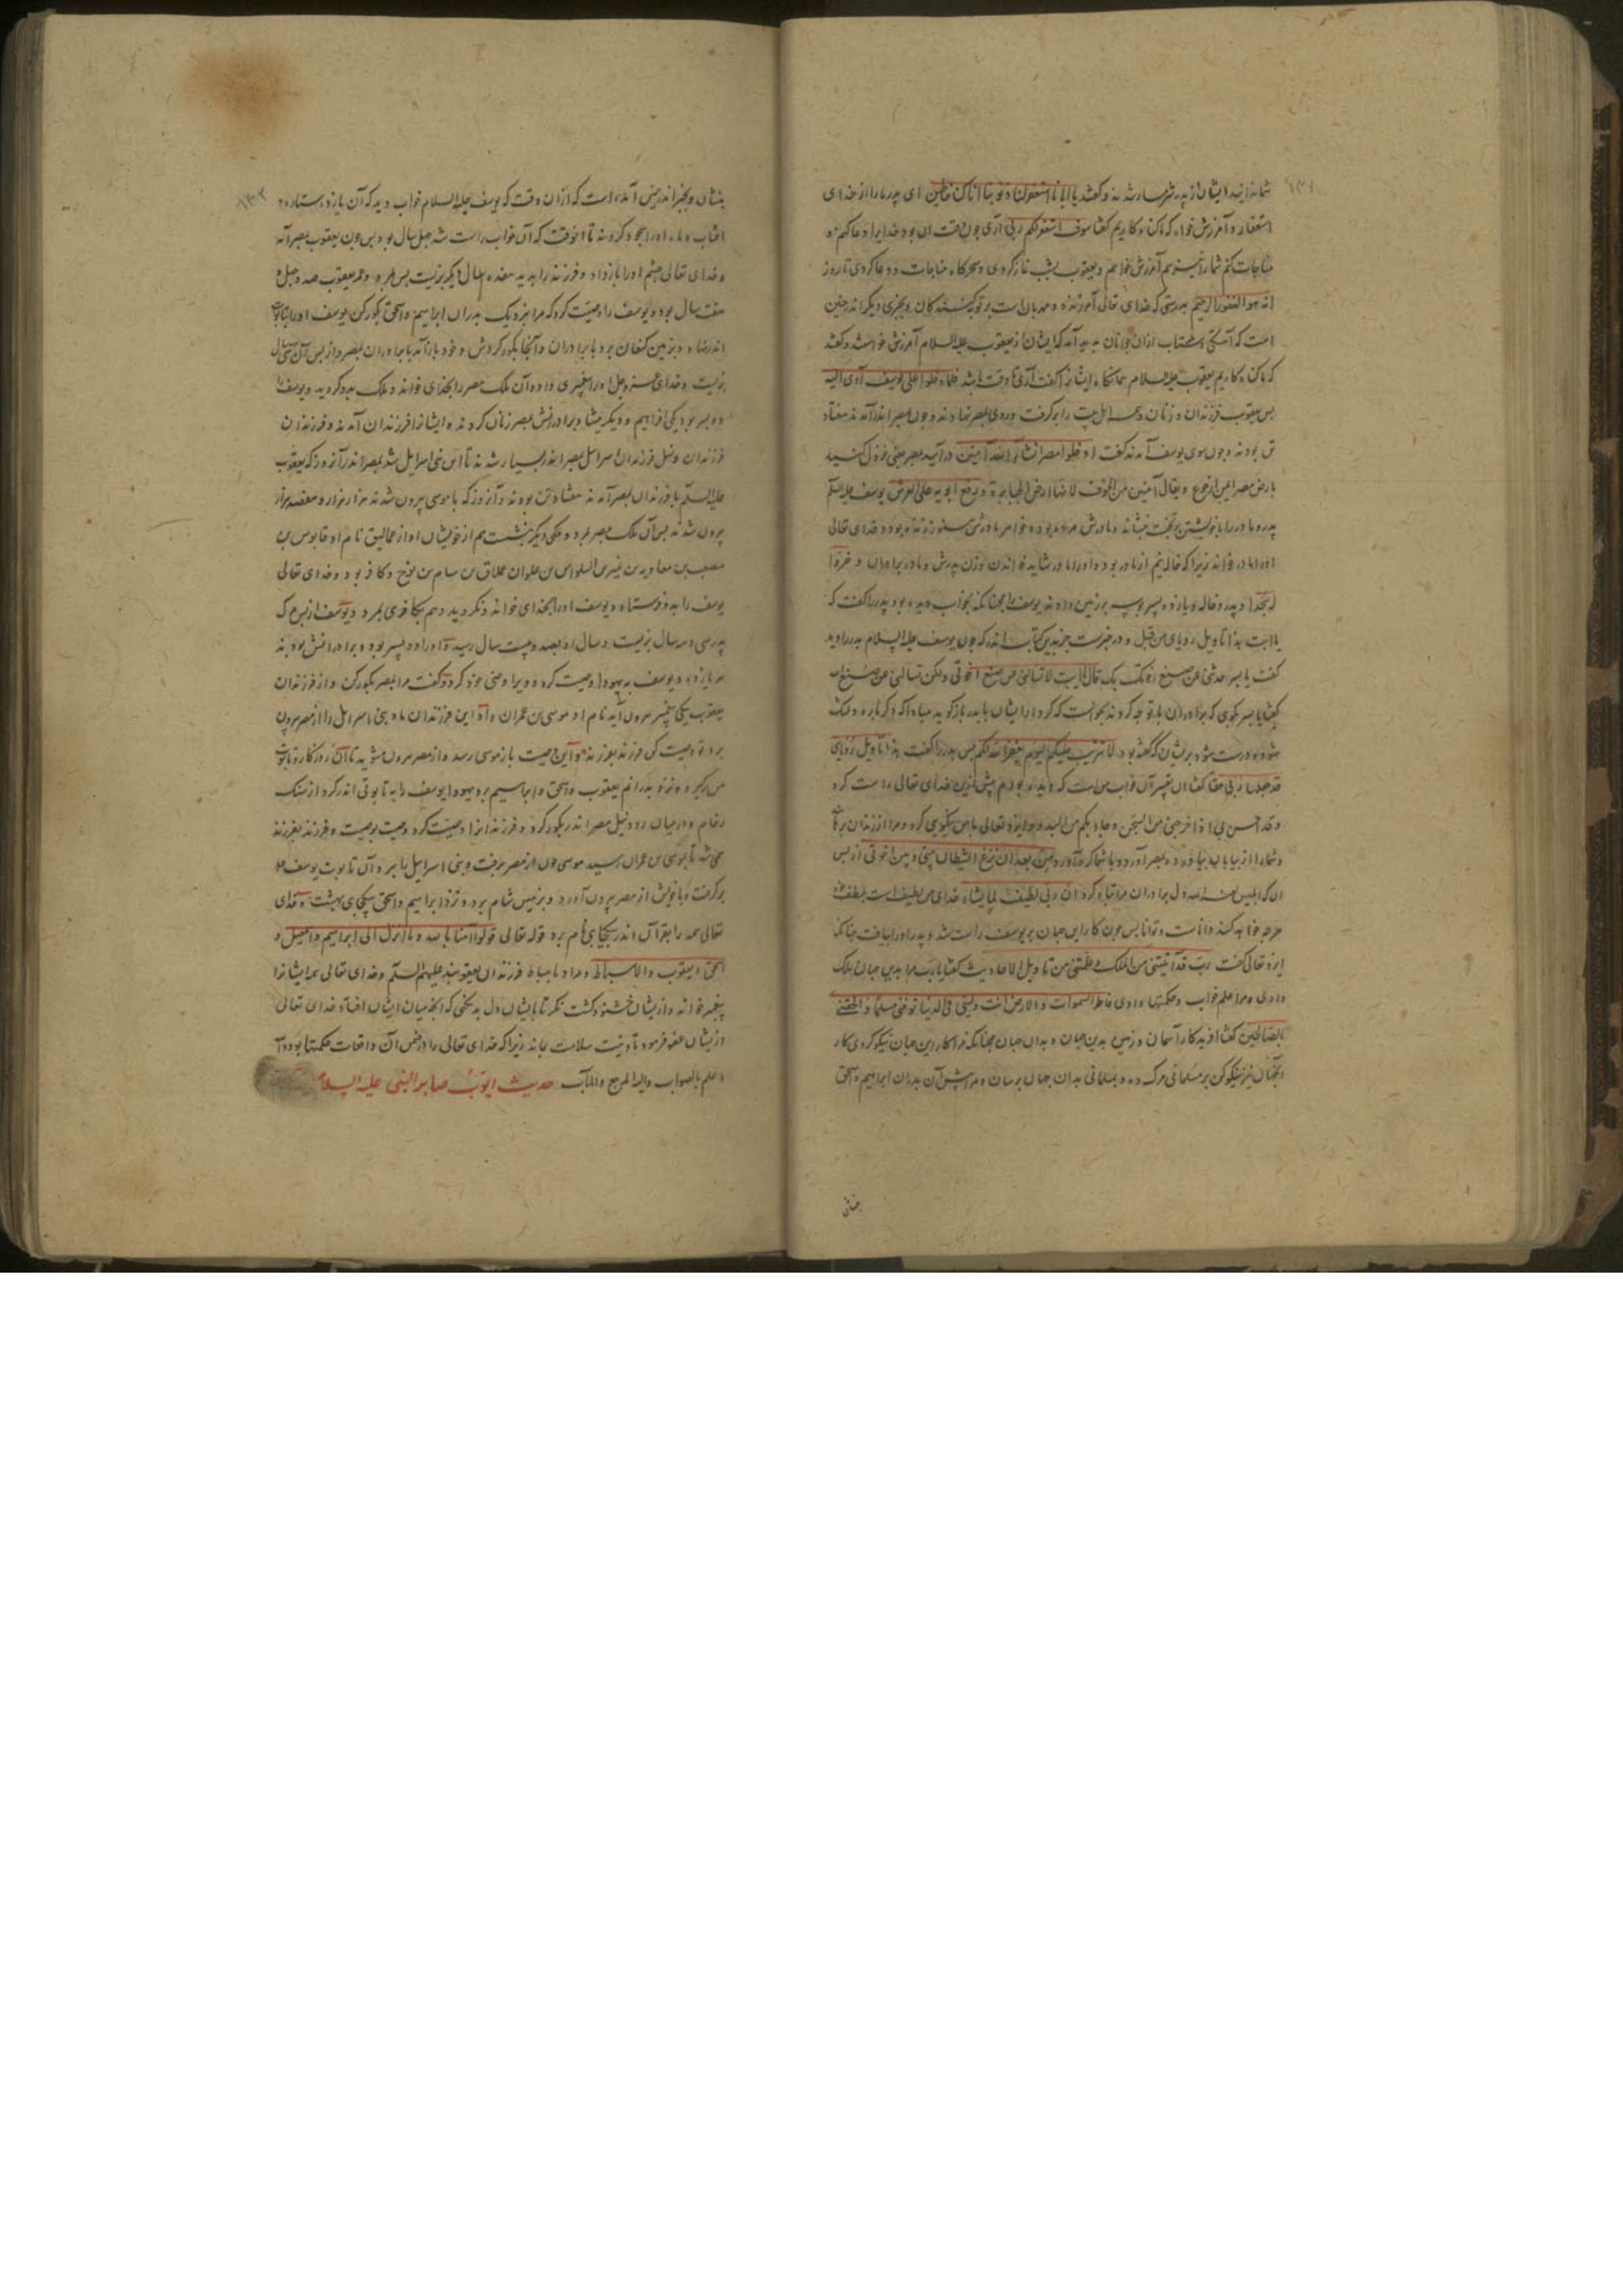 ۱۳۱
شما ندانید ایشان از پدر شرمسار شدند و گفتند یا ابانا استغفر لنا ذنوبنا انا کنا خاطئین ای پدر ما را از خدای
استغفار و آمرزش خواه که ما گناه کاریم گفتا سوف استغفر لکم ربی آری چون وقت آن بود خدایرا دعا کنم و
مناجات کنم شما را آمرزش خواهم و یعقوب بشب نماز کردی و سحرکاه مناجات و دعا کردی تا روز
انه هو الغفور الرحیم بدرستی که خدای تعالی آمرزنده و مهربان است بر توبه کنندکان و بخبری دیگر اندر چنین
است که از یعقوب علیه السلام آمرزش خواستند و گفتند
که ما گناه کاریم یعقوب علیه السلام ایشانرا گفت آری تا وقت باشد فلما دخلوا علی یوسف آوی الیه
پس یعقوب فرزندان و زنان و همه اهل بیت را برگرفت و روی بمصر نهادند و چون بمصر اندر آمدند هفتاد
تن بودند و چون سوی یوسف آمدند گفت ادخلوا مصر انشاء الله آمنین در آیید بمصر یعنی نزول کنید
بارض مصر ایمن از جوع و یقال آمنین من الخوف لانها ارض الجبابرة و رفع ابویه علی العرش یوسف علیه السلم
پدر و مادر را با خویشتن بر تخت نشاند و مادرش مرده بود و خواهر مادرش هنوز زنده بود و خدای تعالی
او را مادر خواند زیرا که خاله نیم از مادر بود و او را مادر شاید خواندن و زن پدرش و مادر برادران و خروا
له سجدا و پدر و خاله و یازده پسر بوسه بر زمین دادند یوسف را همچنانکه بخواب دیده بود پدر را گفت که
یا ابت هذا تاویل رویای من قبل و در خبرست جز بدین کتاب اندر که چون یوسف علیه السلام پدر را دید
گفت یا پسر حدثنی عن صنیع اخوتک بک قال یا ابت لا تسالنی عن صنع اخوتی ولکن تسالنی عن صنع الله
گفتا یا پسر بگوی که برادران با تو چه کردند نخواست که کردار ایشان با پدر باز گوید
شود و درست شود بریشان که گفته بود لا تثریب علیکم الیوم یغفر الله لکم پس پدر را گفت هذا تاویل رؤیای
قد جعلها ربی حقا گفتا این تفسیر آن خواب من است که دیده بودم پیش ازین خدای تعالی راست کرد
وقد احسن بی اذ اخرجنی من السجن وجاء بکم من البدو و ایزد تعالی با من نیکویی کرد و مرا از زندان برهانید
و شما را از بیابان بیاورد و بمصر آورد و با شما گرد آورد من بعد ان نزغ الشیطان بینی و بین اخوتی از پس
آن که ابلیس لعنه الله دل برادران مرا تباه کرد ان ربی لطیف لما یشاء خدای من لطیف است بلطف خود
هرچه خواهد کند و داناست و توانا پس چون کار این جهان بر یوسف راست شد و پدر او را بیافت چنانکه
ایزد تعالی گفت رب قد آتیتنی من الملک وعلمتنی من تاویل الاحادیث گفتا یا رب مرا بدین جهان ملک
دادی و مرا علم خواب و حکمتها دادی فاطر السموات والارض انت ولیی فی الدنیا توفنی مسلما والحقنی
بالصالحین گفتا آفریدکار آسمان و زمین بدین جهان و بدان جهان همچنانکه مرا کار این جهان نیکو کردی کار
آنجهان نیز نیکو کن بر مسلمانی مرگ ده و بمسلمانی بدان جهان برسان و مرا پیش آن پدران ابراهیم و اسحق
بنشان
۱۳۲
بنشان و بخبر اندر چنین آمده است که از آن وقت که یوسف علیه السلام خواب دید که آن یازده ستاره و
افتاب و ماه او را سجود کردند تا آنوقت که آن خواب راست شد چهل سال بود پس چون یعقوب بمصر آمد
و خدای تعالی چشم او را باز داد و فرزند را بدید هفده سال دیگر بزیست پس بمرد و عمر یعقوب صد و چهل و
هفت سال بود و یوسف را وصیت کرد که مرا بنزدیک پدران ابراهیم و اسحق بگور کن یوسف او را بتابوت
اندر نهاد و بزمین کنعان برد با برادران و آنجا بگور کردش و خود باز آمد با برادران بمصر و از پس آن سال
بزیست و خدای عز و جل او را پیغمبری داد و آن ملک مصر را بخدای خواند و ملک بدو گروید و یوسف را
دو پسر بود یکی افراهیم و دیگر میشا و برادرانش بمصر زنان کردند و ایشانرا فرزندان آمدند و فرزندان
فرزندان و نسل فرزندان اسرائیل بمصر اندر بسیار شدند تا این بنی اسرائیل شد بمصر اندر آنروز که یعقوب
علیه السلم با فرزندان بمصر آمدند هفتاد تن بودند و آنروز که با موسی بیرون شدند هزار هزار و هفصد هزار
بیرون شدند پس آن ملک مصر بمرد و ملکی دیگر بنشست هم از خویشان او از عمالیق نام او قابوس بن
مصعب بن معاویه بن نمیر بن السلواس بن علوان بن عملاق بن سام بن نوح و کافر بود و خدای تعالی
یوسف را بدو فرستاد و یوسف او را بخدای خواند و نگروید و هم بکافری بمرد و یوسف از پس مرگ
پدر سی و سه سال بزیست و سال او بصد و بیست سال رسید و او را دو پسر بود و برادرانش بودند
هر یازده و یوسف به یهودا وصیت کرد و ویرا وصی خود کرد و گفت مرا بمصر بگور کن و از فرزندان
یعقوب یکی پیغمبر بیرون آید نام او موسی بن عمران و او این فرزندان ما و بنی اسرائیل را از مصر بیرون
برد تو وصیت کن فرزند بفرزند و این وصیت باز موسی رسد و از مصر بیرون شوید تا آن روزکار تابوت
من برگیرد و نزد پدرانم یعقوب و اسحق و ابراهیم برد یهودا یوسف را به تابوتی اندر کرد از سنگ
رخام و در میان رود نیل مصر اندر بگور کرد و فرزندانرا وصیت کرد وصیت بوصیت و فرزند بفرزند
همی شد تا بموسی بن عمران رسید موسی چون از مصر برفت و بنی اسرائیل را ببرد آن تابوت یوسف علیه
برگرفت و با خویش از مصر بیرون آورد و بزمین شام برد و نزد ابراهیم و اسحق بیکجای بهشت و خدای
تعالی همه را بقرآن اندر بیکجای نام برد قوله تعالی قولوا آمنا بالله وما انزل الی ابراهیم واسمعیل و
اسحق و یعقوب والاسباط و مراد باسباط فرزندان یعقوبند علیهم السلم و خدای تعالی همه ایشانرا
پیغمبر خوانده و ازیشان خشنود گشت نگر تا بایشان دل بد نکنی که آنچه میان ایشان افتاد خدای تعالی
ازیشان عفو فرمود تا دینت سلامت بماند زیرا که خدای تعالی را در ضمن آن واقعات حکمتها بود والله
اعلم بالصواب والیه المرجع والمآب حدیث ایوب صابر النبی علیه السلام